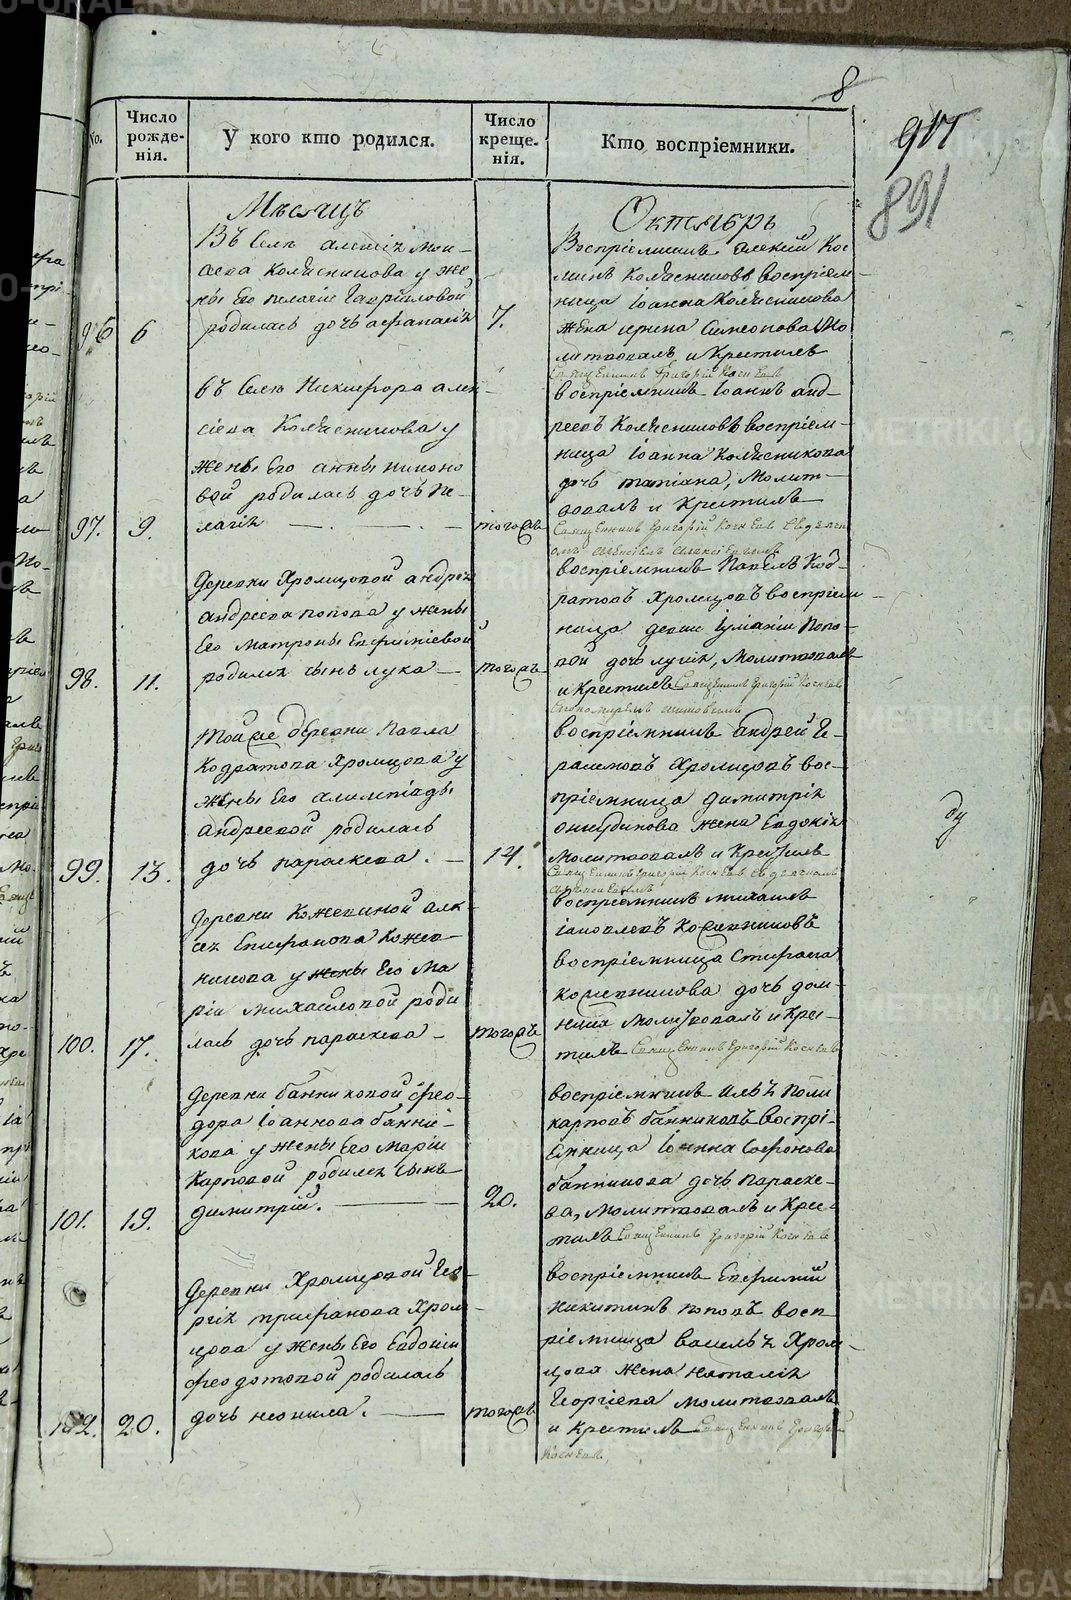 METRIKI.GASO-URAL.RU
8
917
891
No.
Число рожде-нія.
У кого кто родился.
Число креще-нія.
Кто воспріемники.
Мѣсяцъ
Октябрь
Въ Селѣ алексѣя
сѣева Колѣсникова у же
ны Его пелагіи Гавриловой
96 6 родилась дочь афанасія 7.
Воспріемникъ Алексѣй Кос
минъ Колѣсниковъ воспріем-
ница Іоанна Колѣсникова
жена ирина Симеонова Мо
литвовалъ и Крестилъ
Священникъ Григорій
въ Селѣ Никифора алек-
сіева Колѣсникова у
жены Его анны
вой родилась дочь пе-
97. 9. лагія — . — . — тогожъ
воспріемникъ Іоаннъ анд-
реевъ Колѣсниковъ воспріем-
ница Іоанна Колѣсникова
дочь татіана, Молит-
вовалъ и Крестилъ
Священникъ Григорій
деревни Хромцовой андрея
андреева попова у жены
Его Матроны Евфиміевой
98. 11. родился сынъ лука — тогожъ
воспріемникъ Павелъ Код-
ратовъ Хромцовъ воспріем-
ница девки Попо-
вой дочь лукія, Молитвовалъ
и Крестилъ Священникъ Григорій
Той же деревни Павла
Кодратова Хромцова у
жены Его алимпіады
андреевой родилась
99. 13. дочь параскева. — 14.
воспріемникъ андрей Ге-
расимовъ Хромцовъ вос-
пріемница димитрія
онкудинова жена Евдокія
Молитвовалъ и Крестилъ
Священникъ Григорій
деревни Кожевиной алек-
сея Епифанова Кожев-
никова у жены Его Ма
ріи Михайловой роди
100. 17. лась дочь параскева — тогожъ
воспріемникъ михаилъ
іаковлевъ Кожевниковъ
воспріемница Стефана
кожевникова дочь дом-
ника Молитвовалъ и Крес-
тилъ Священникъ Григорій
деревни банниковой фео-
дора Іоаннова банни-
кова у жены Его Маріи
Карповой родился сынъ
101. 19. димитрій. — 20.
воспріемникъ Илья Поли
карповъ банниковъ воспрі-
емница Іоанна Софонова
банникова дочь параске-
ва, Молитвовалъ и Крес-
тилъ Священникъ Григорій
деревни Хромцовой Гео-
ргія трифанова Хром-
цова у жены Его Евдокіи
феодотовой родилась
102. 20. дочь неонила. — тогожъ
воспріемникъ Евфимій
никитинъ поповъ восп
ріемница василья Хром-
цова жена наталія
Георгіева Молитвовалъ
и Крестилъ Священникъ Григорій
METRIKI.GASO-URAL.RU